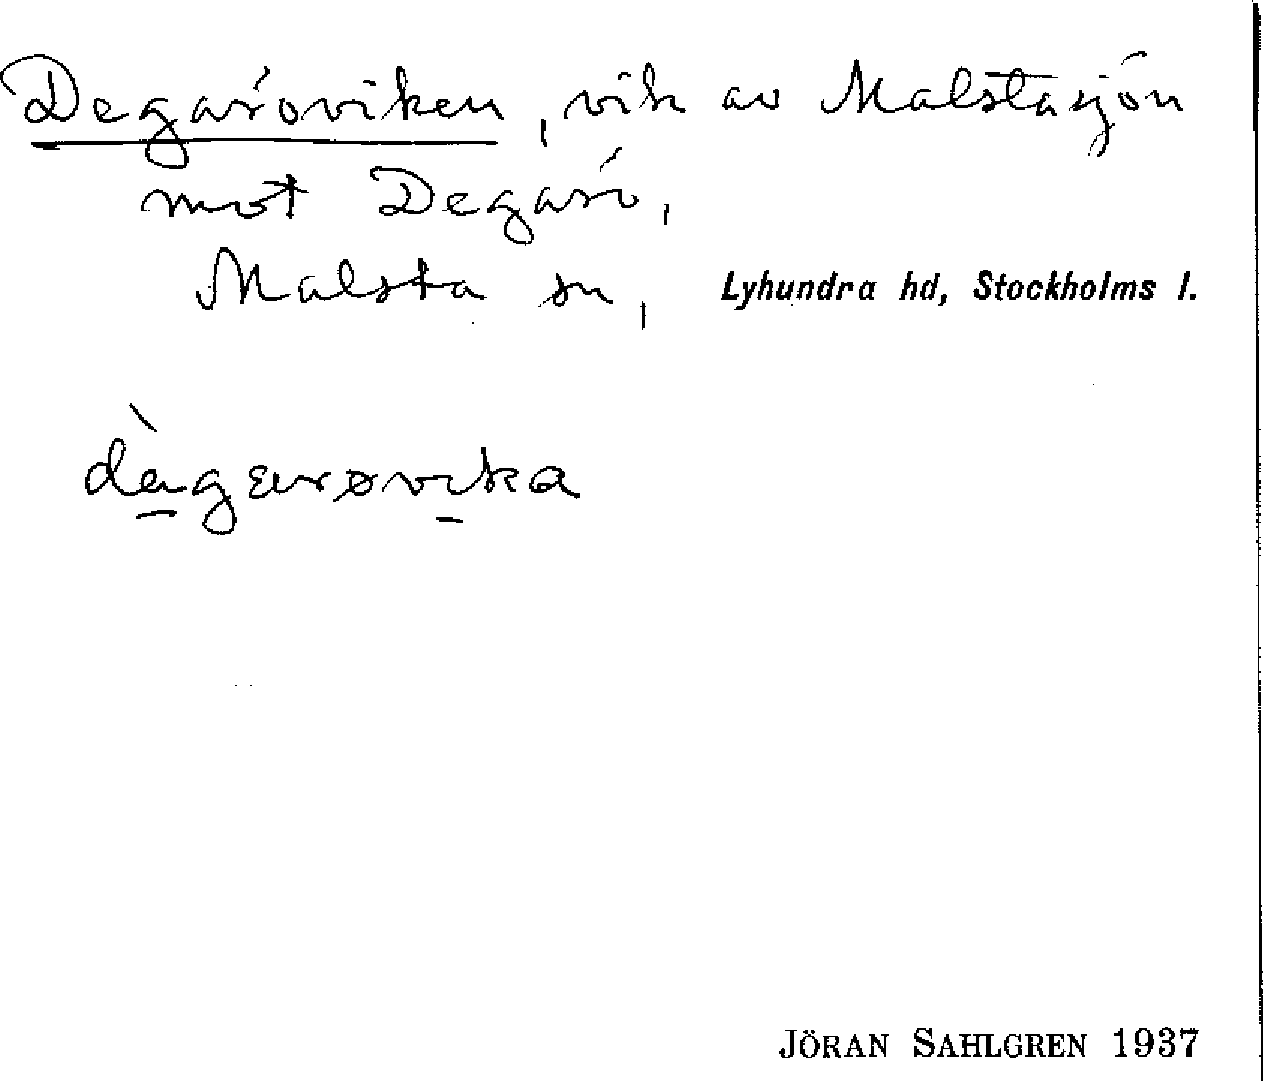 Degaröviken, vik av Malstasjön
mot Degarö,
Malsta sn, Lyhundra hd, Stockholms l.
JÖRAN SAHLGREN 1937